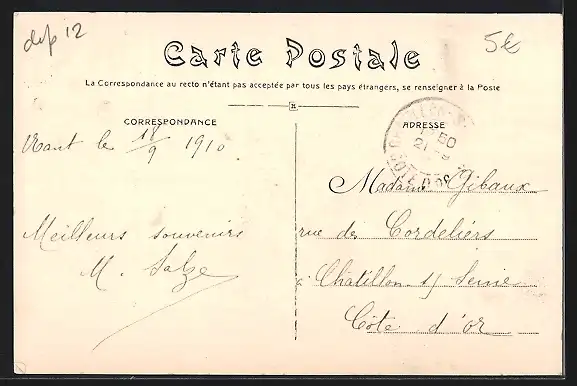 dép 12
5€
Carte Postale
La Correspondance au recto n'étant pas acceptée par tous les pays étrangers, se renseigner à la Poste
CORRESPONDANCE
ADRESSE
le 18/9 1910
Meilleurs souvenirs
M.
Madame Gibaux
rue des Cordeliers
à Châtillon s/ Seine
Côte d'or
COTE D'OR